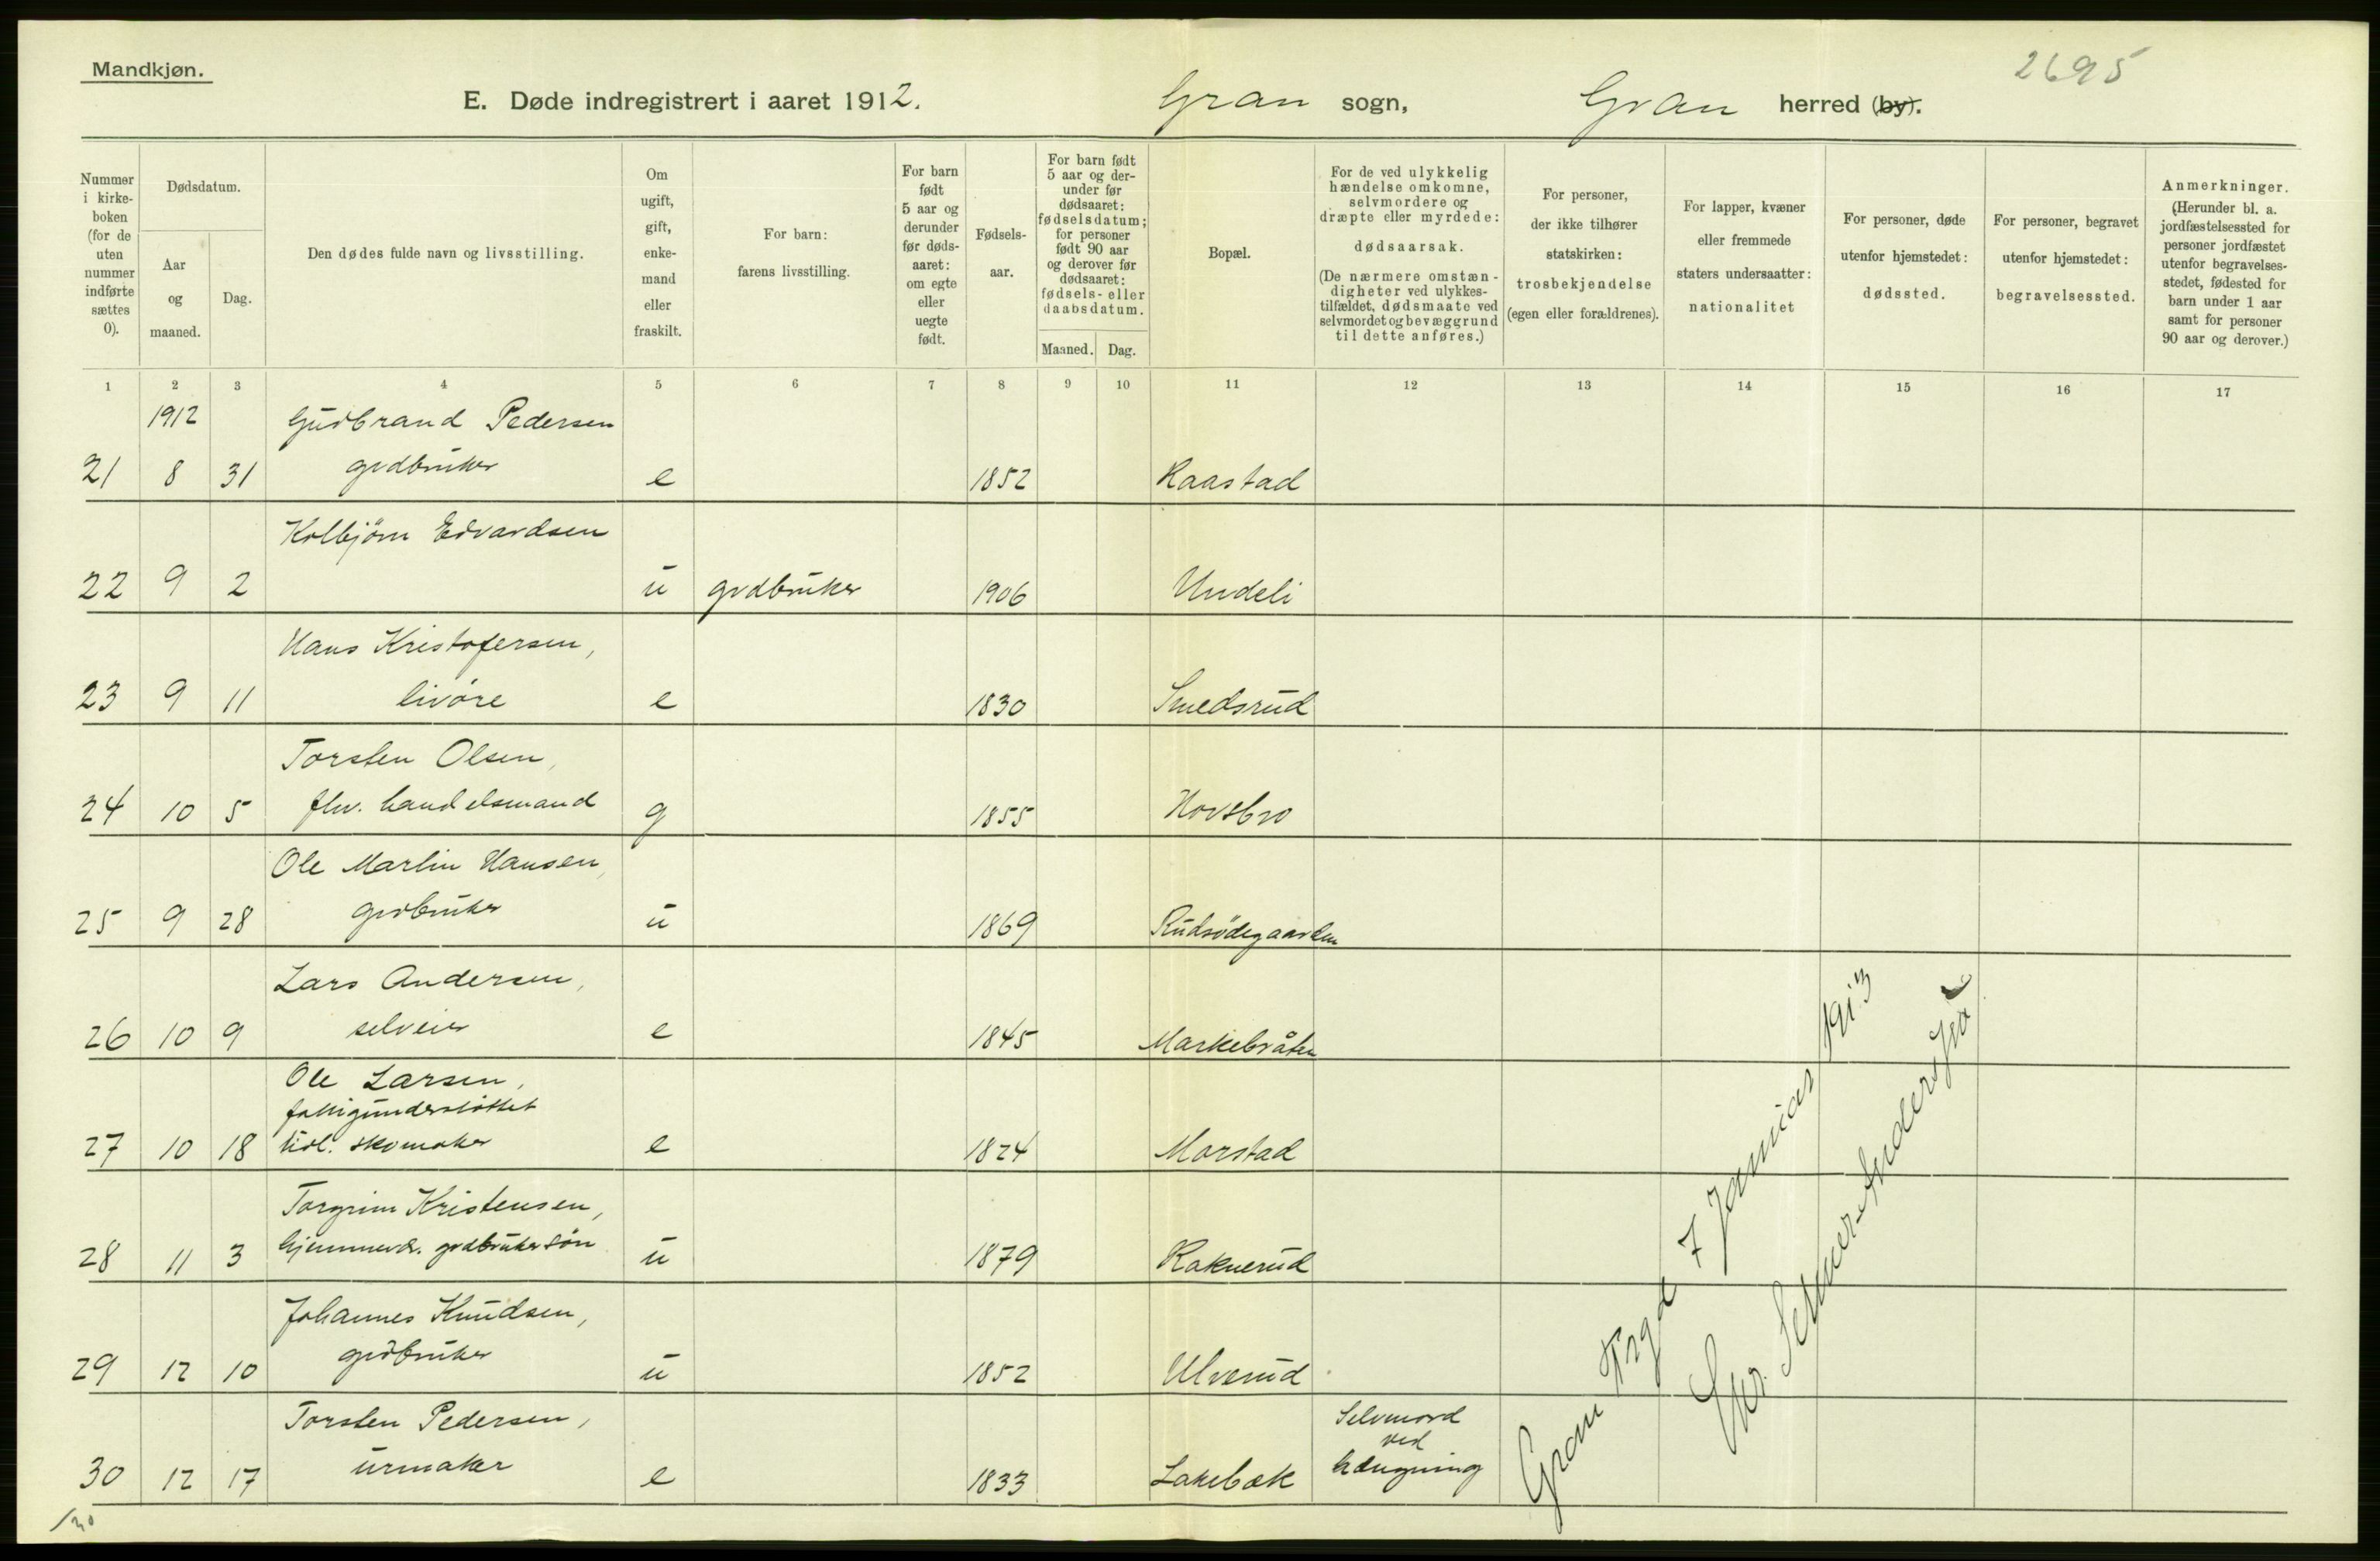 Mandkjøn.
2695
E. Døde indregistrert i aaret 1912. Gran sogn, Gran herred (by).
Nummer i kirke-boken (for de uten nummer indførte sættes 0).
Dødsdatum.
Aar og maaned.
Dag.
Den dødes fulde navn og livsstilling.
Om ugift, gift, enke-mand eller fraskilt.
For barn: farens livsstilling.
For barn født 5 aar og derunder før døds-aaret: om egte eller uegte født.
Fødsels-aar.
For barn født 5 aar og der-under før dødsaaret: fødselsdatum; for personer født 90 aar og derover før dødsaaret: fødsels- eller daabsdatum.
Maaned. Dag.
Bopæl.
For de ved ulykkelig hændelse omkomne, selvmordere og dræpte eller myrdede: dødsaarsak. (De nærmere omstæn-digheter ved ulykkes-tilfældet, dødsmaate ved selvmordet og bevæggrund til dette anføres.)
For personer, der ikke tilhører statskirken: trosbekjendelse (egen eller forældrenes).
For lapper, kvæner eller fremmede staters undersaatter: nationalitet
For personer, døde utenfor hjemstedet: dødssted.
For personer, begravet utenfor hjemstedet: begravelsessted.
Anmerkninger. (Herunder bl. a. jordfæstelsessted for personer jordfæstet utenfor begravelses-stedet, fødested for barn under 1 aar samt for personer 90 aar og derover.)
1 2 3 4 5 6 7 8 9 10 11 12 13 14 15 16 17
1912 Gudbrand Pedersen
21 8 31 grdbruker e 1852 Raastad
Kolbjørn Edvardsen
22 9 2 u grdbruker 1906 Undeli
Hans Kristofersen,
23 9 11 livøre e 1830 Smedsrud
Torsten Olsen,
24 10 5 fhv. handelsmand g 1855 Hovsbro
Ole Martin Hansen,
25 9 28 grdbruker u 1869 Rudsödegaarden
Lars Andersen,
26 10 9 selveier e 1845 Markebråten
Ole Larsen,
fattigunderstöttet
27 10 18 tidl. skomaker e 1824 Morstad
Torgrim Kristensen,
28 11 3 hjemmevr. grdbrukersön u 1879 Raknerud
Johannes Knudsen,
29 12 10 grdbruker u 1852 Ulverud
Torsten Pedersen, Selvmord
ved
30 12 17 urmaker e 1833 Lakebæk hængning
Gran Prgd 7 Januar 1913
/30